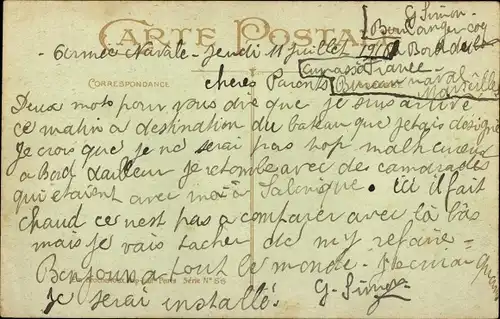 CARTE POSTALE
G. Simon
Boulanger coq
a Bord du
Armée Navale - Jeudi 11 Juillet 1918
Cuirassé France
CORRESPONDANCE
chers Parents
Bureau naval
Marseille
Deux mots pour vous dire que je suis arrivé
ce matin a destination du bateau que jetais designé
Je crois que je ne serai pas trop malheureux
a Bord dailleur je retombe avec des camarades
qui étaient avec moi à Salonique. ici il fait
chaud ce nest pas a comparer avec là bâs
mais je vais tacher de my refaire =
Bonjour a tout le monde. Jecrirai quand
Paris Série N° 66
je serai installé. G. Simon